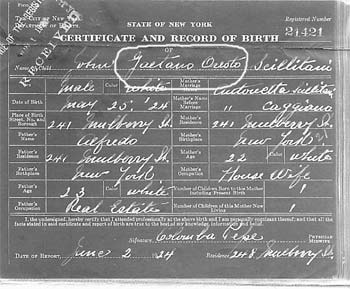 STATE OF NEW YORK
Registered Number
21421
CERTIFICATE AND RECORD OF BIRTH
OF
Name of Child John Gaetano Oresto Scillitani
Sex male Color white Mother's Marriage Antonetta Scillitani
Date of Birth May 25, '24 Mother's Name Before Marriage " Caggiano
Place of Birth Street, No. and Borough 241 Mulberry St. Mother's Residence 241 Mulberry St.
Father's Name Alfredo Mother's Birthplace New York
Father's Residence 241 Mulberry St. Mother's Age 22 Color white
Father's Birthplace New York Mother's Occupation House Wife
Father's Age 23 Color white Number of Children Born to this Mother including Present Birth 1
Father's Occupation Real Estate Number of Children of this Mother Now Living 1
I, the undersigned, hereby certify that I attended professionally at the above birth and I am personally cognizant thereof; and that all the facts stated in said certificate and report of birth are true to the best of my knowledge, information and belief.
Signature, Colomba
PHYSICIAN
MIDWIFE
DATE OF REPORT, June 2 1924 Residence 248 Mulberry St.